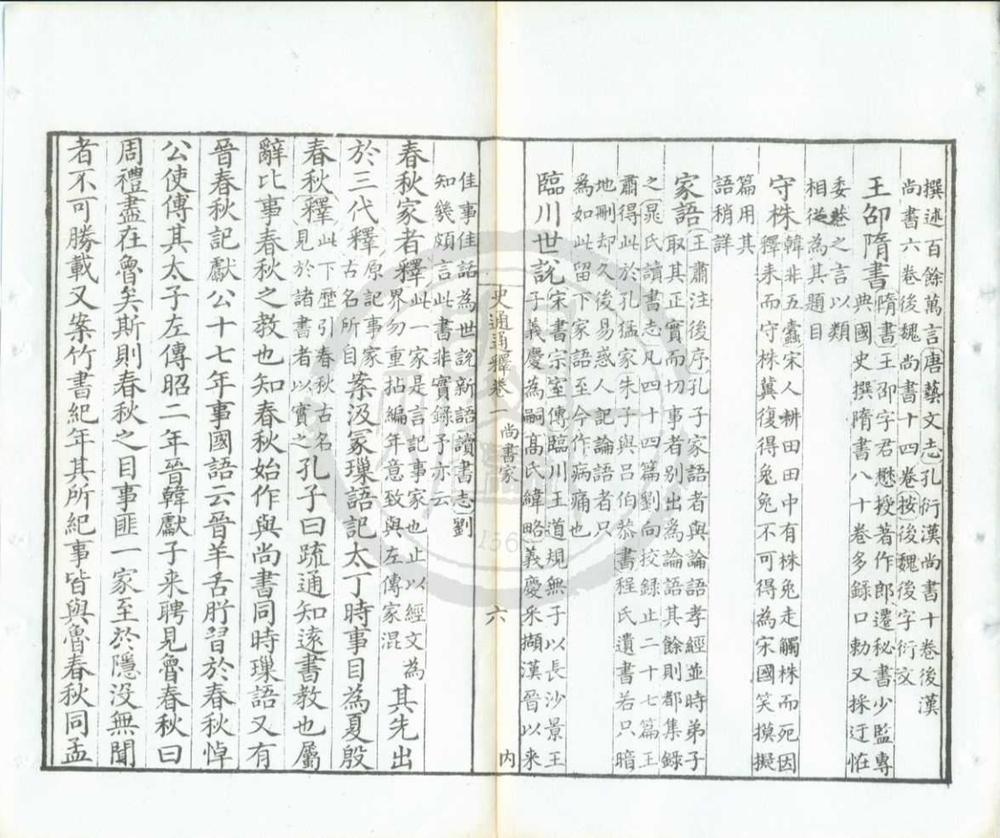 撰述百餘萬言唐藝文志孔衍漢尚書十卷後漢
尚書六卷後魏尚書十四卷按後魏後字衍文
王邵隋書隋書王邵字君懋授著作郎遷秘書少監專
典國史撰隋書八十卷多録口勅又採迂怪
委巷之言以類
相從為其題目
守株韓非五蠹宋人耕田田中有株兔走觸株而死因
釋耒而守株冀復得兔兔不可得為宋國笑摸擬
篇用其
語稍詳
家語王肅注後序孔子家語者與論語孝經並時弟子
取其正實而切事者别出為論語其餘則都集録
之晁氏讀書志凡四十四篇劉向校録止二十七篇王
肅得此於孔猛家朱子與吕伯恭書程氏遺書若只暗
地刪却久後易惑人記論語者只
為如此留下家語至今作病痛也
臨川世説宋書宗室傳臨川王道規無子以長沙景王
子義慶為嗣高氏緯略義慶采擷漢晉以來
史通通釋卷一 尚書家 六 内
佳事佳話為世説新語讀書志劉
知幾頗言此書非實録予亦云
春秋家者釋此一家是言記事家也止以經文為
界勿重拈編年意致與左傳家混其先出
於三代釋原記事家
古名所自案汲冢璅語記太丁時事目為夏殷
春秋釋此下歷引春秋古名
見於諸書者以實之孔子曰疏通知遠書教也屬
辭比事春秋之教也知春秋始作與尚書同時璅語又有
晉春秋記獻公十七年事國語云晉羊舌肸習於春秋悼
公使傅其太子左傳昭二年晉韓獻子来聘見魯春秋曰
周禮盡在魯矣斯則春秋之目事匪一家至於隱没無聞
者不可勝載又案竹書紀年其所紀事皆與魯春秋同孟